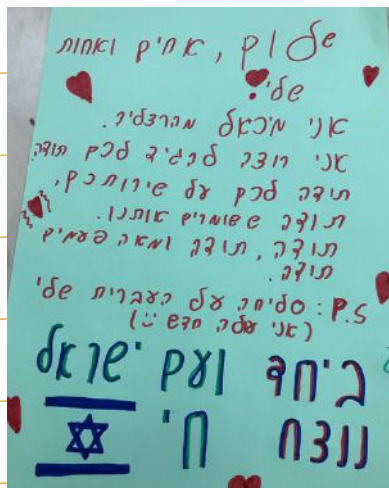 שלום, אחים ואחות
שלי!
אני מיכאל מהרצליה.
אני רוצה להגיד לכם תודה.
תידה לכם על שירותכם,
תודה ששומרים אותנו.
תודה, תודה ומאה פעמים
תודה.
P.S: סליחה על העברית שלי
(אני עולה חדש :))
ביחד ועם ישראל
ננצח חי